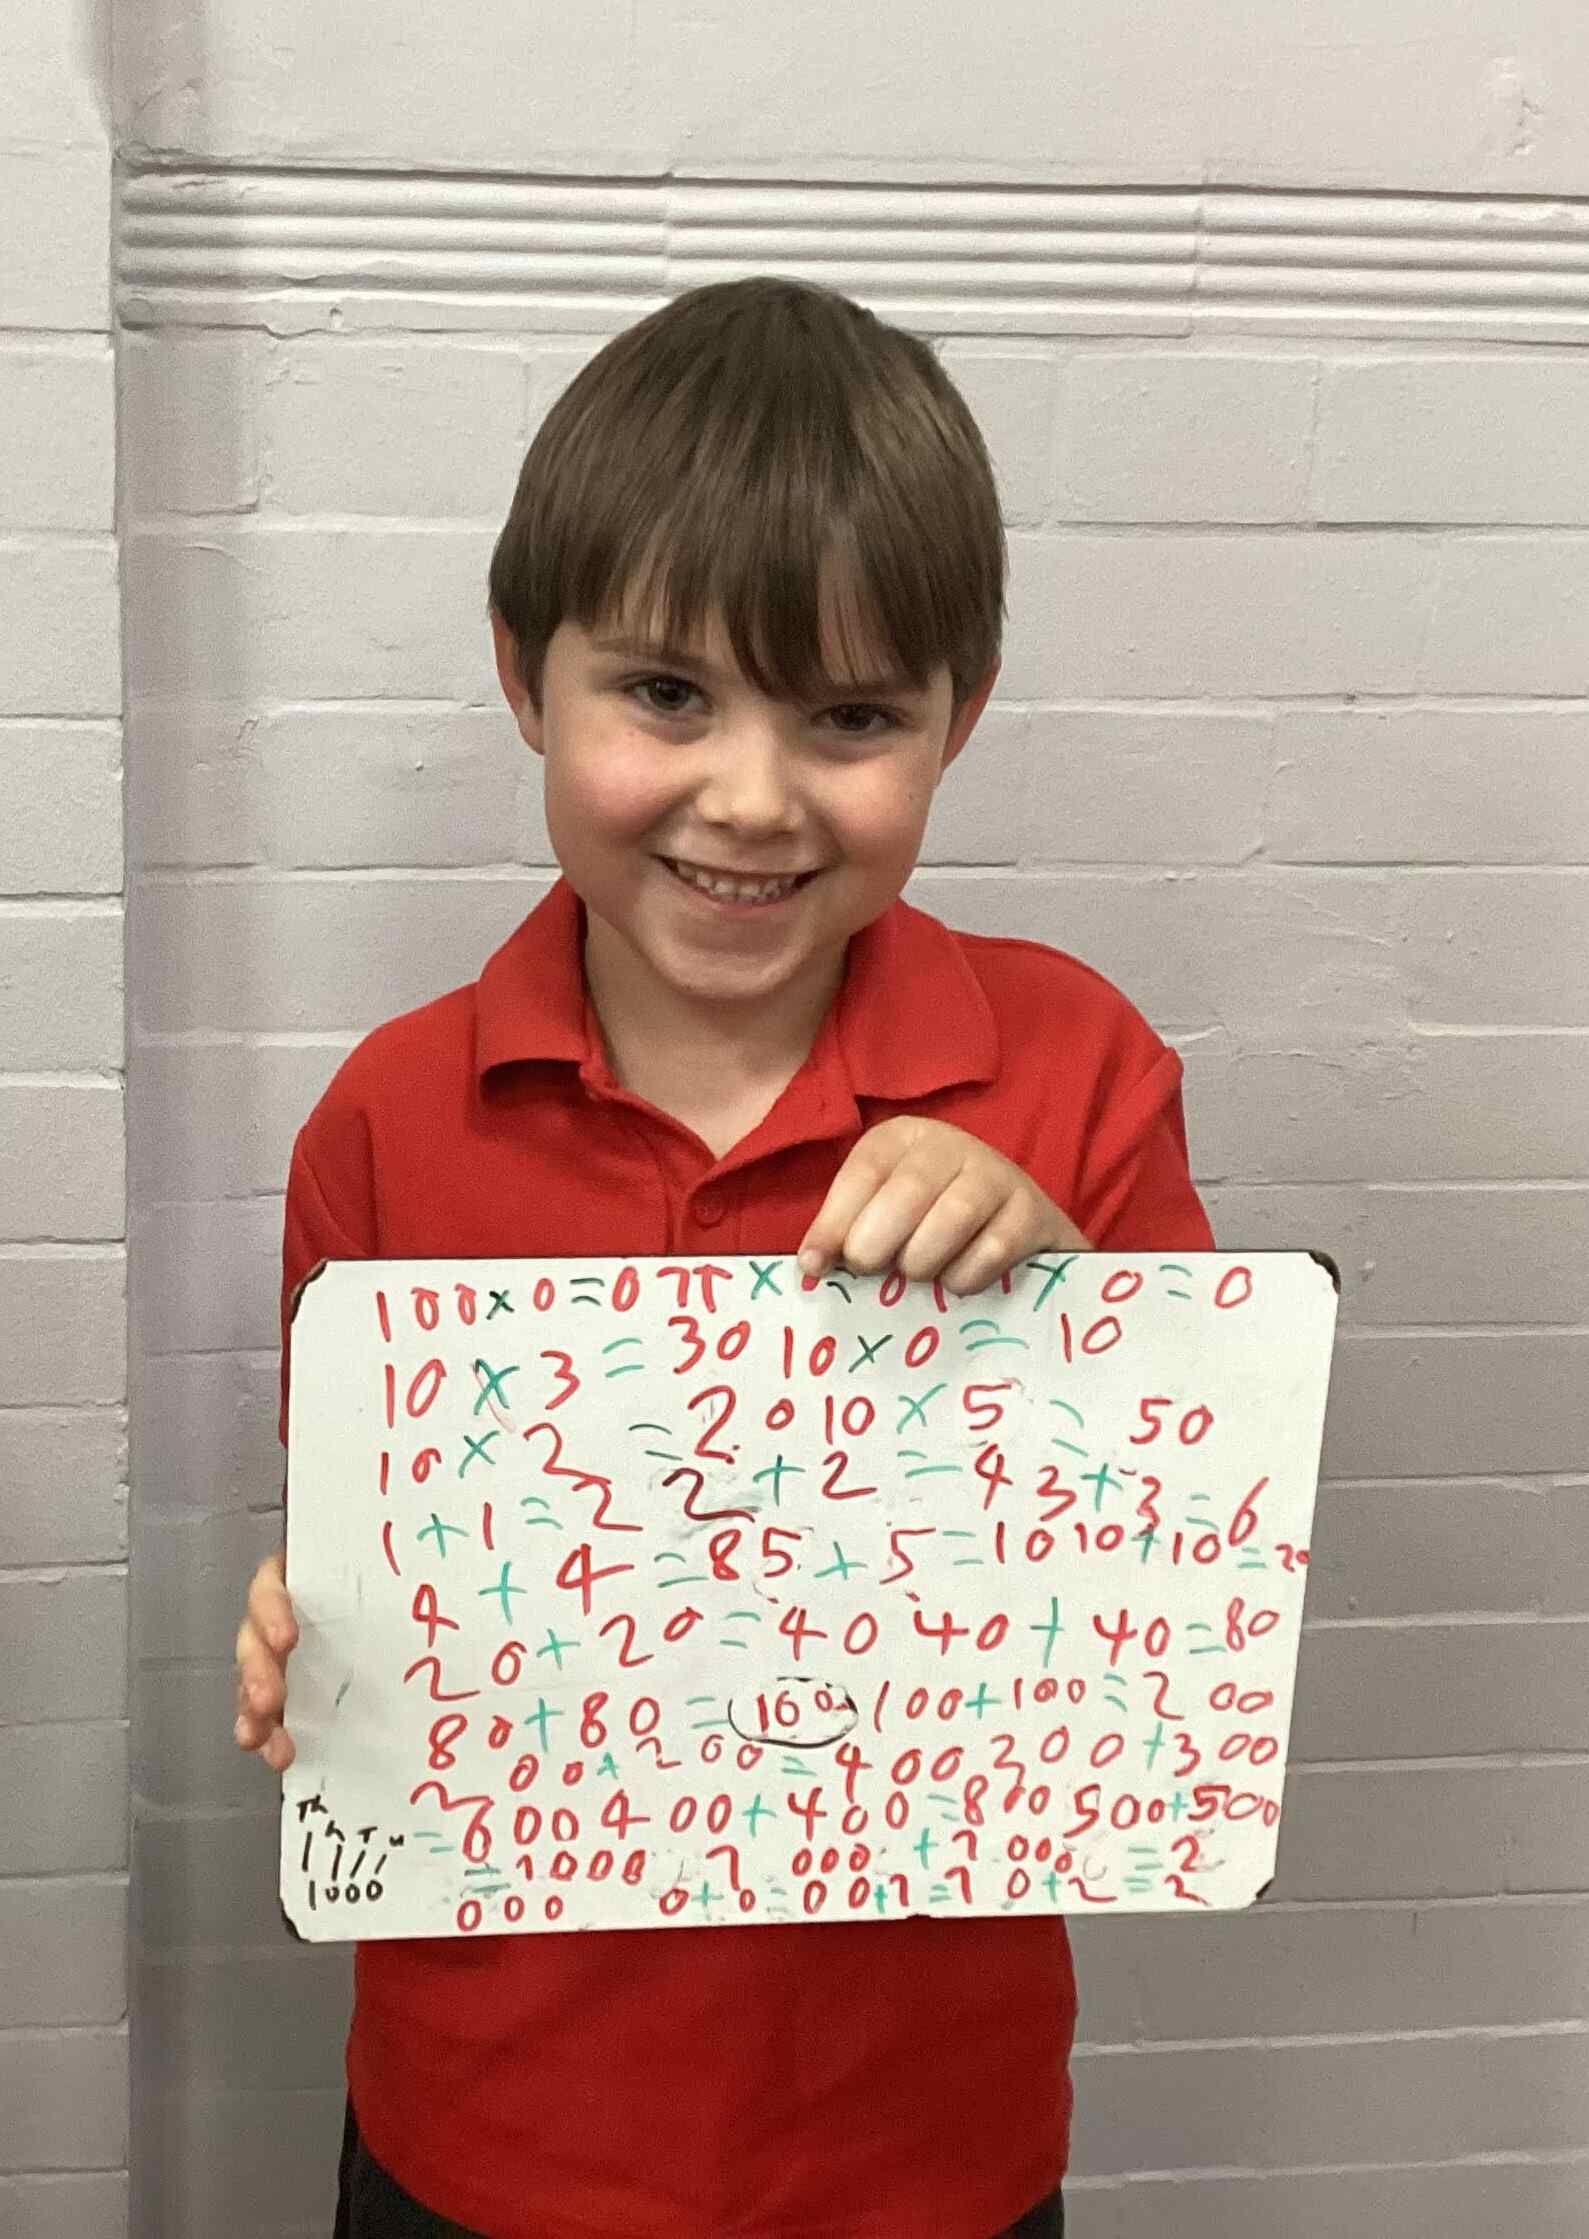 100 × 0 = 0 × = 0 × 0 = 0
10 × 3 = 30 10 × 0 = 10
10 × 2 = 20 10 × 5 = 50
1 + 1 = 2 2 + 2 = 4 3 + 3 = 6
4 + 4 = 8 5 + 5 = 10 10 + 10 = 20
20 + 20 = 40 40 + 40 = 80
80 + 80 = 160 100 + 100 = 200
200 + 200 = 400 300 + 300
= 600 400 + 400 = 800 500 + 500
= 1000 1 000 + 1 000 = 2
000 0 + 0 = 0 0 + 1 = 1 0 + 2 = 2
Th h T u
1 1 1 1
1000